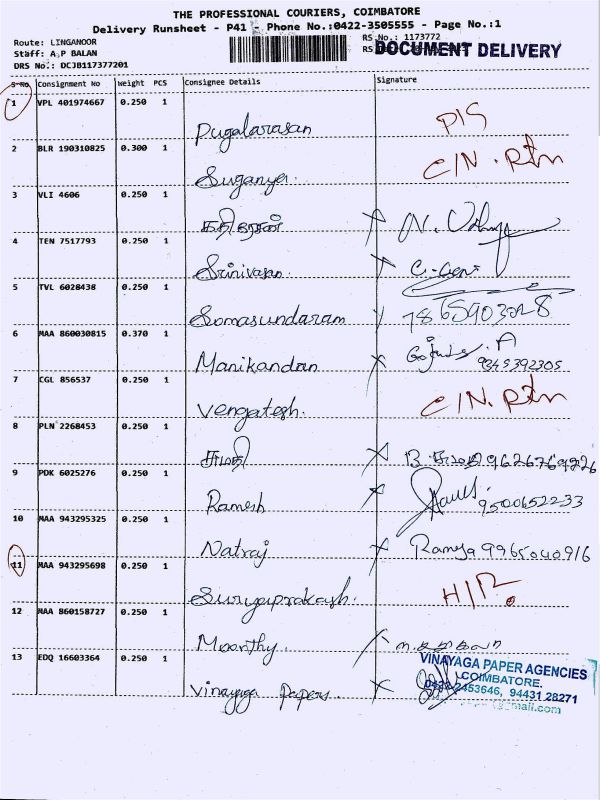 THE PROFESSIONAL COURIERS, COIMBATORE
Delivery Runsheet - P41 - Phone No.:0422-3505555 - Page No.:1
Route: LINGANOOR
RS No.: 1173772
Staff: A P BALAN
RS
DOCUMENT DELIVERY
DRS No.: DCJB117377201
S No. Consignment No Weight PCS Consignee Details Signature
1 VPL 401974667 0.250 1
Pugalarasan P/S
2 BLR 190310825 0.300 1
Suganya. C/N. Rtn
3 VLI 4606 0.250 1
கதிரவன் X N.
4 TEN 7517793 0.250 1
Srinivasan. X
5 TVL 6028438 0.250 1
Somasundaram 7865903228
6 MAA 860030815 0.370 1
Manikandan X A
9345392305
7 CGL 856537 0.250 1
Vengatesh. C/N. Rtn
8 PLN 2268453 0.250 1
சுமதி X B. சுமதி 9626769226
9 PDK 6025276 0.250 1
Ramesh X 9500652233
10 MAA 943295325 0.250 1
Natraj X Ramya 9965040916
11 MAA 943295698 0.250 1
Suryaprakash. H/R.
12 MAA 860158727 0.250 1
Moorthy.
13 EDQ 16603364 0.250 1
VINAYAGA PAPER AGENCIES
COIMBATORE.
Vinayaga Papers. X 0422-2453646, 94431 28271
mail.com